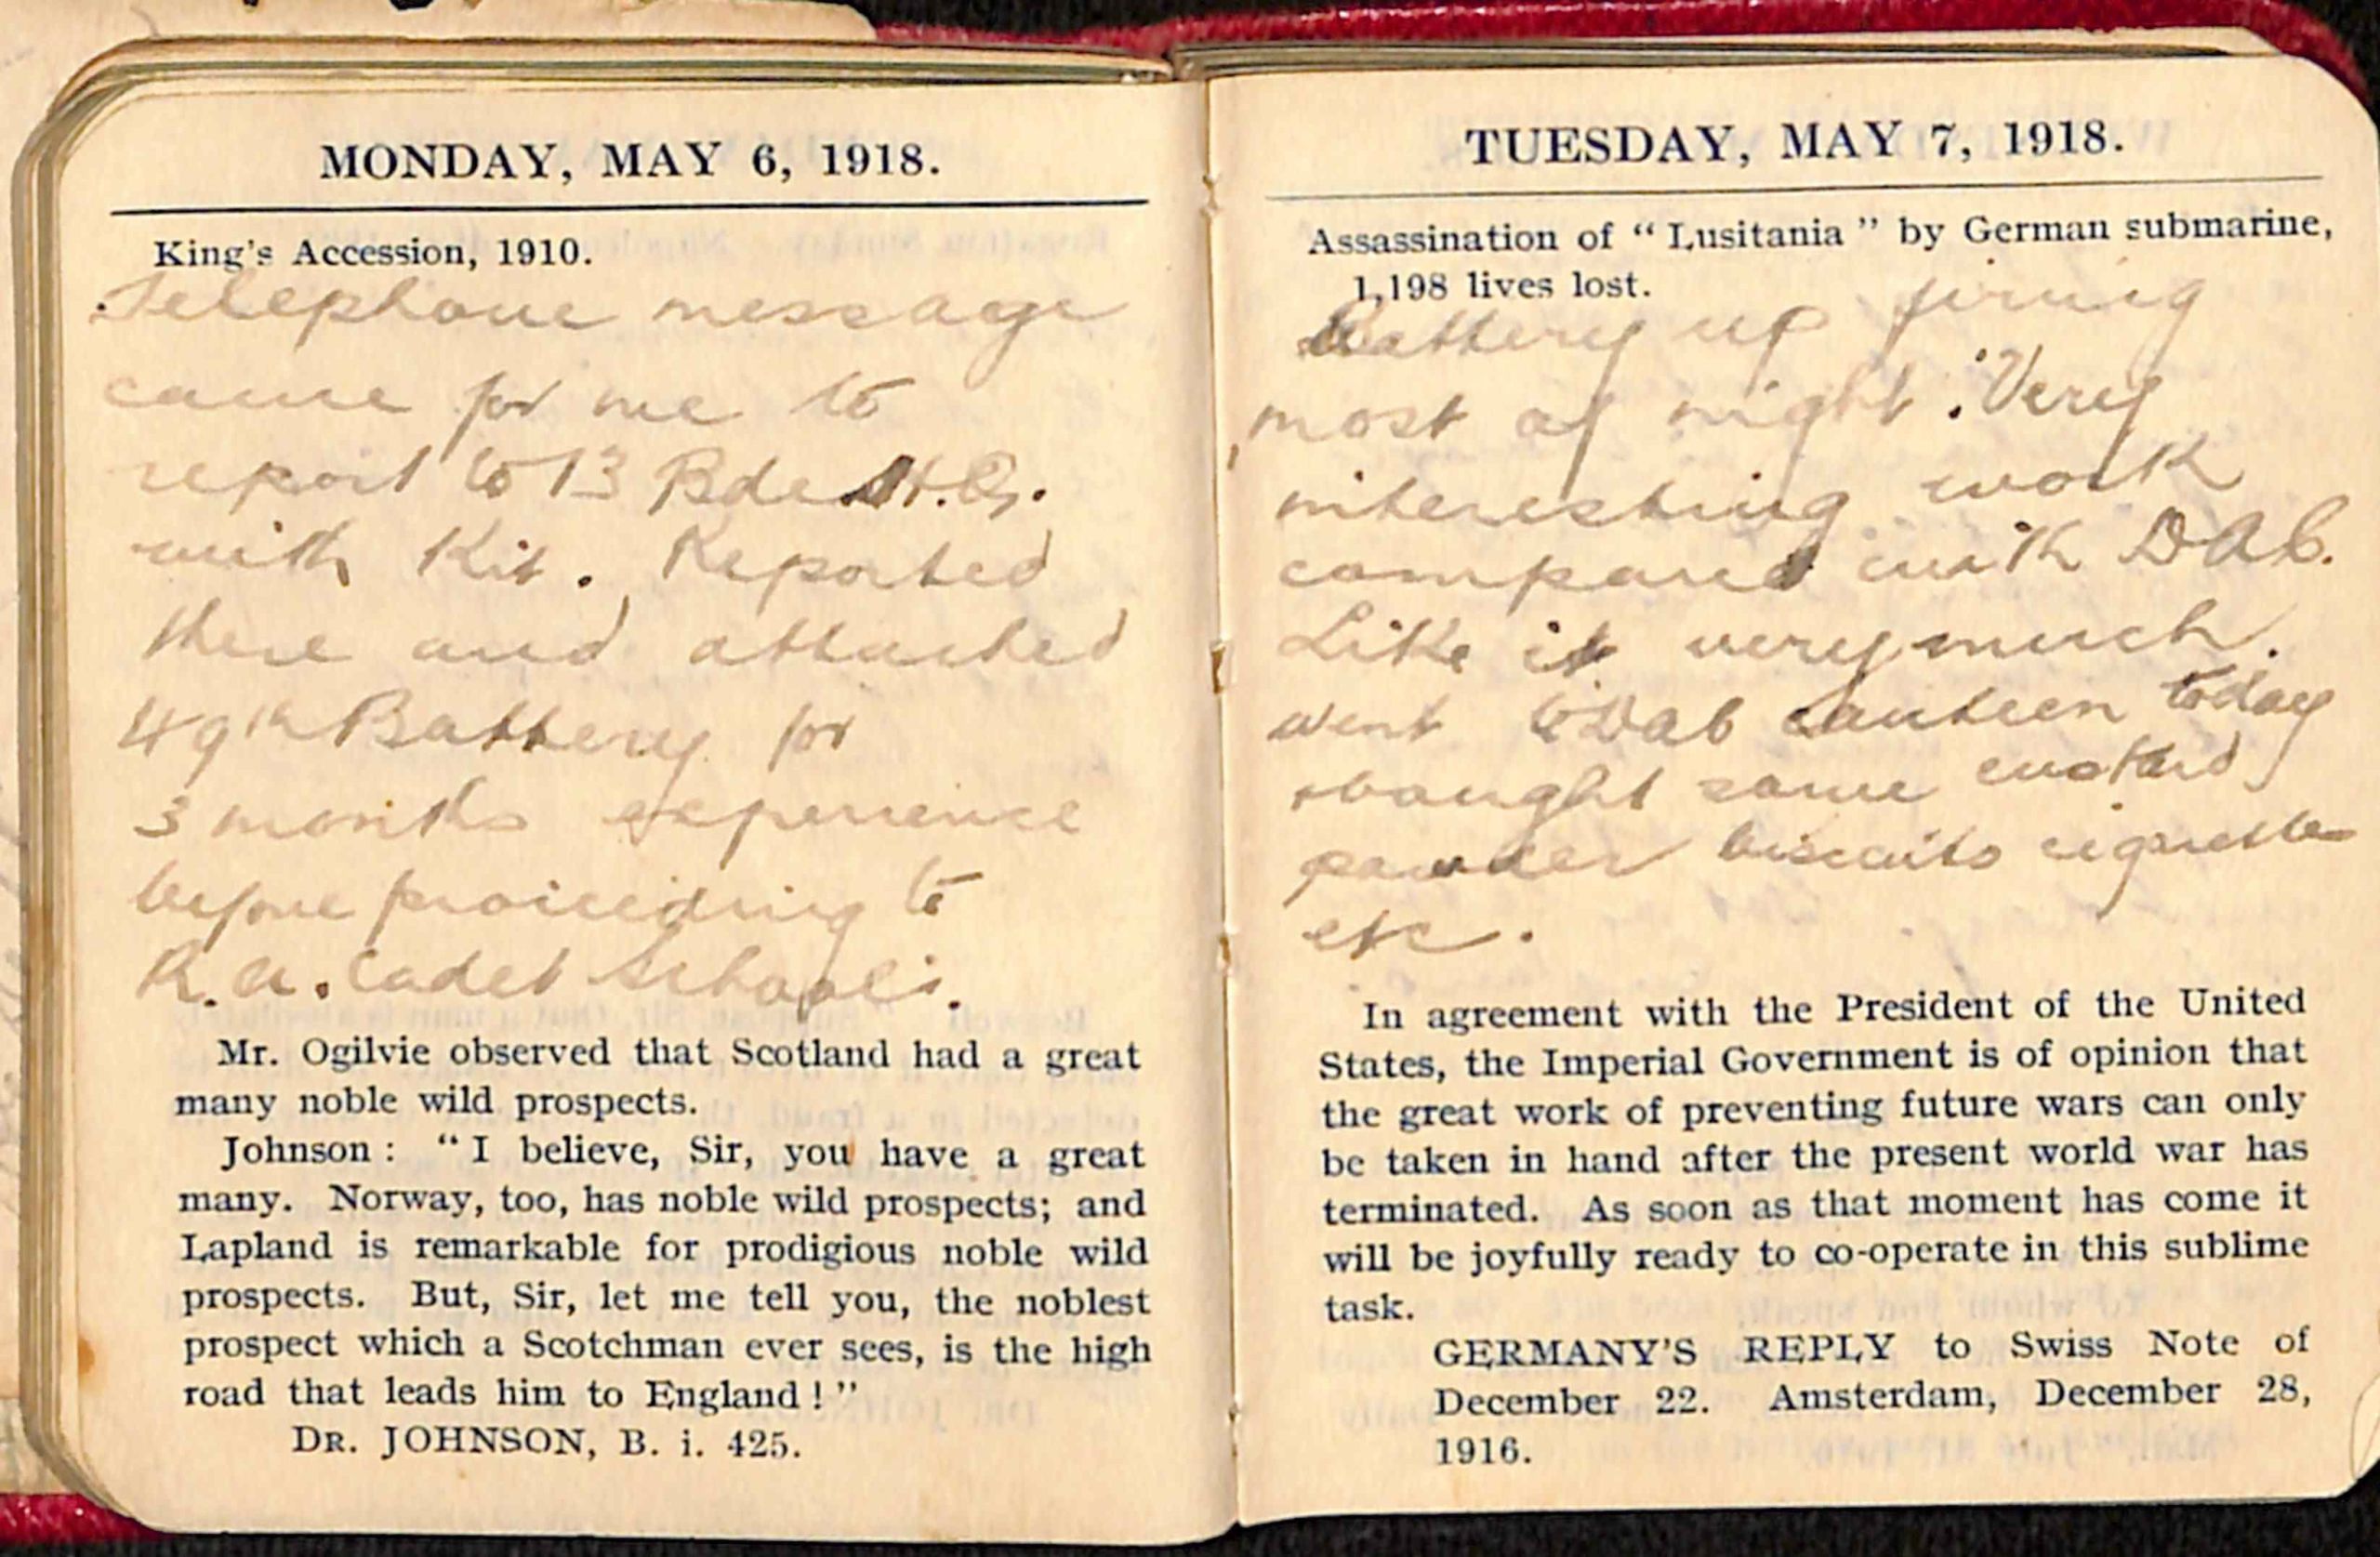 MONDAY, MAY 6, 1918.
King's Accession, 1910.
Telephone message
came for me to
report to 13 Bde H.Q.
with Kit. Reported
there and attached
49th Battery for
3 months experience
before proceeding to
R.A. Cadet School.
Mr. Ogilvie observed that Scotland had a great
many noble wild prospects.
Johnson : " I believe, Sir, you have a great
many. Norway, too, has noble wild prospects; and
Lapland is remarkable for prodigious noble wild
prospects. But, Sir, let me tell you, the noblest
prospect which a Scotchman ever sees, is the high
road that leads him to England ! "
DR. JOHNSON, B. i. 425.
TUESDAY, MAY 7, 1918.
Assassination of " Lusitania " by German submarine,
1,198 lives lost.
Battery up firing
most of night. Very
interesting work
compared with DAC.
Like it very much.
Went to DAC Canteen today
bought some custard
powder biscuits cigarettes
etc.
In agreement with the President of the United
States, the Imperial Government is of opinion that
the great work of preventing future wars can only
be taken in hand after the present world war has
terminated. As soon as that moment has come it
will be joyfully ready to co-operate in this sublime
task.
GERMANY'S REPLY to Swiss Note of
December 22. Amsterdam, December 28,
1916.